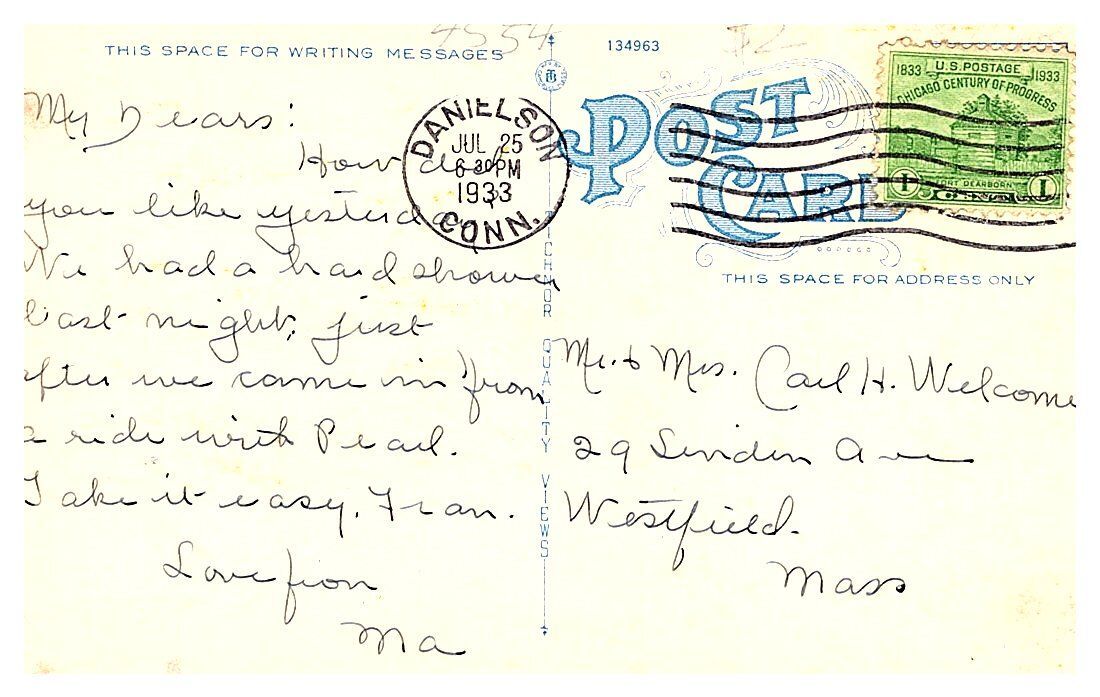 4554
$2
THIS SPACE FOR WRITING MESSAGES
134963
My Dears:
How did
you like yesterday
We had a hard shower
last night, just
after we came in from
a ride with Pearl.
Take it easy, Fran.
Love from
Ma
DANIELSON
JUL 25
6-30PM
1933
CONN.
POST
CARD
1833 U.S. POSTAGE 1933
CHICAGO CENTURY OF PROGRESS
FORT DEARBORN
1 1
THIS SPACE FOR ADDRESS ONLY
TICHNOR QUALITY VIEWS
Mr. & Mrs. Carl H. Welcome
29 Linden Ave
Westfield.
Mass